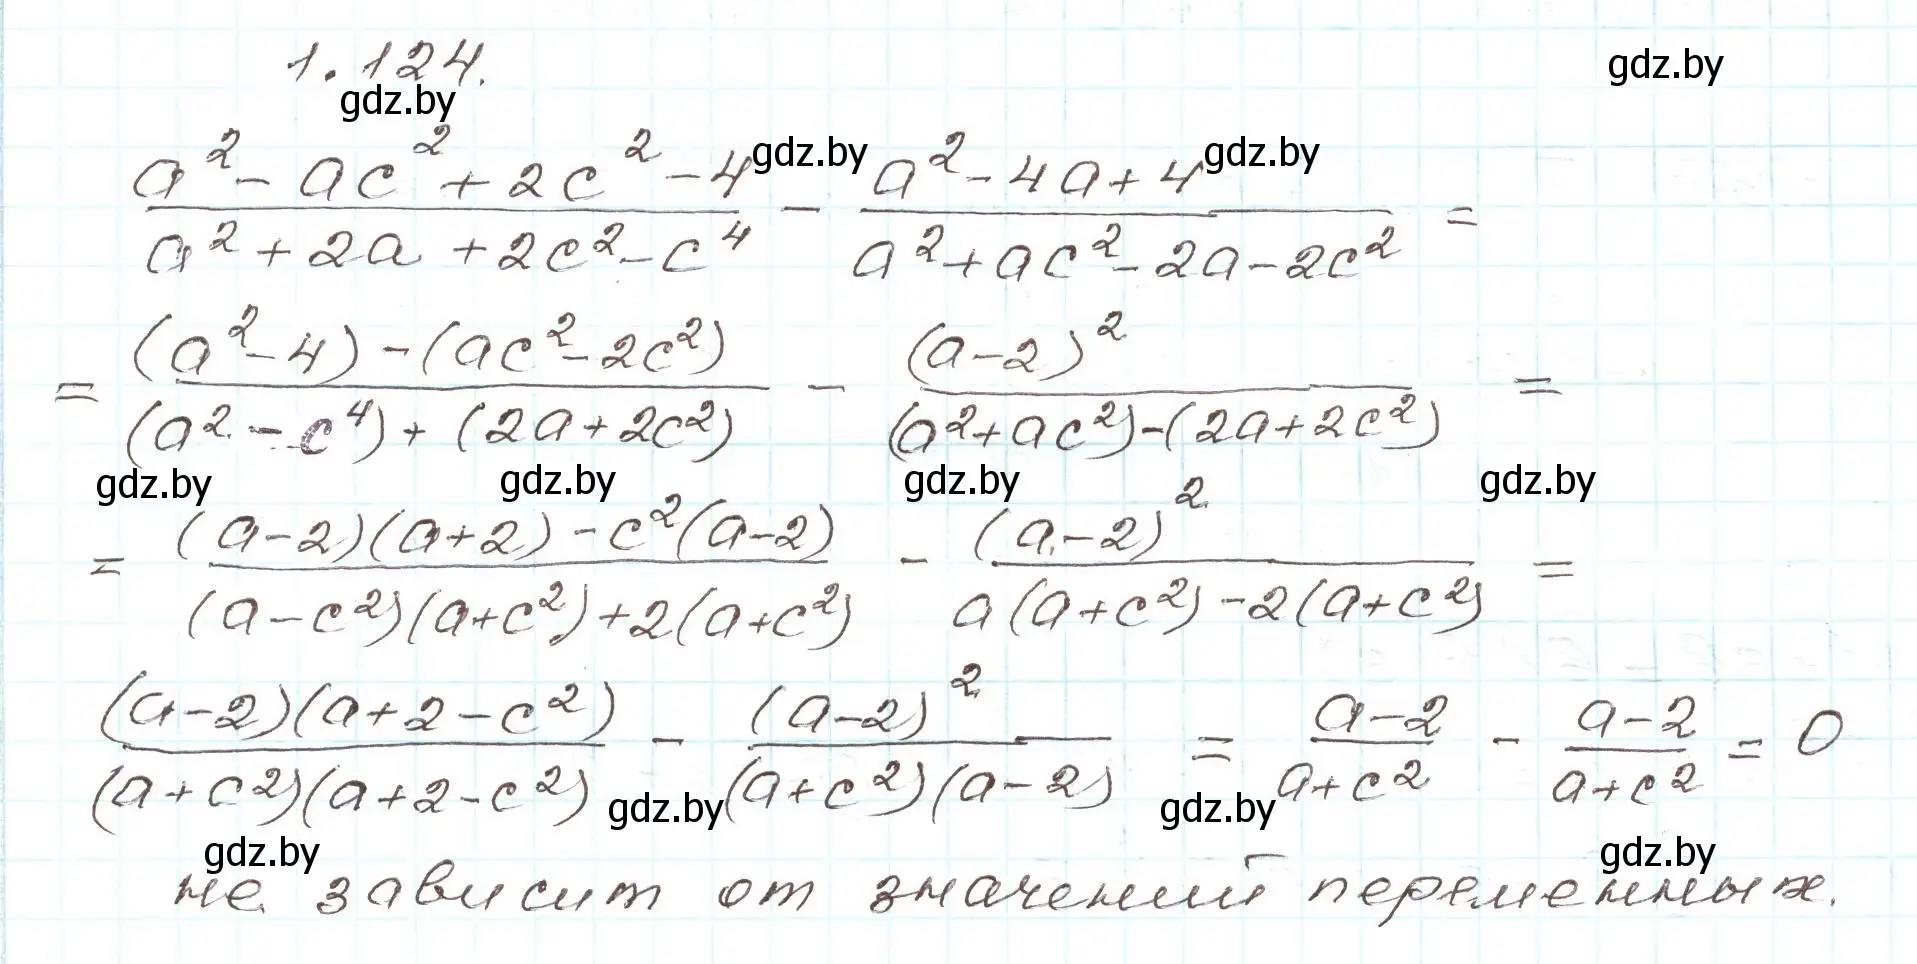 1.124.
gdz.by
gdz.by
a² - ac² + 2c² - 4 gdz.by a² - 4a + 4 gdz.by
――― - ――― =
a² + 2a + 2c² - c⁴ a² + ac² - 2a - 2c²
(a² - 4) - (ac² - 2c²) (a - 2)²
= ――― - ――― =
(a² - c⁴) + (2a + 2c²) (a² + ac²) - (2a + 2c²)
gdz.by gdz.by gdz.by gdz.by
(a - 2)(a + 2) - c²(a - 2) (a - 2)²
= ――― - ――― =
(a - c²)(a + c²) + 2(a + c²) a(a + c²) - 2(a + c²)
(a - 2)(a + 2 - c²) (a - 2)² a - 2 a - 2
――― - ――― = ――― - ――― = 0
(a + c²)(a + 2 - c²) (a + c²)(a - 2) a + c² a + c²
gdz.by gdz.by
gdz.by gdz.by
не зависит от значений переменных.